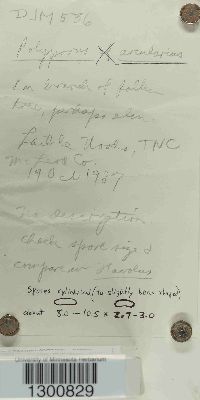 DJM 536
Polyporus arcularius
on branch of fallen
tree, perhaps elm.
Laible Woods, TNC
McLeod Co.
19 Oct 1987
No description
check spore size &
compare w
Spores cylindrical to slightly bean shaped,
about 8.0 - 10.5 x 2.7-3.0
University of Minnesota Herbarium
1300829